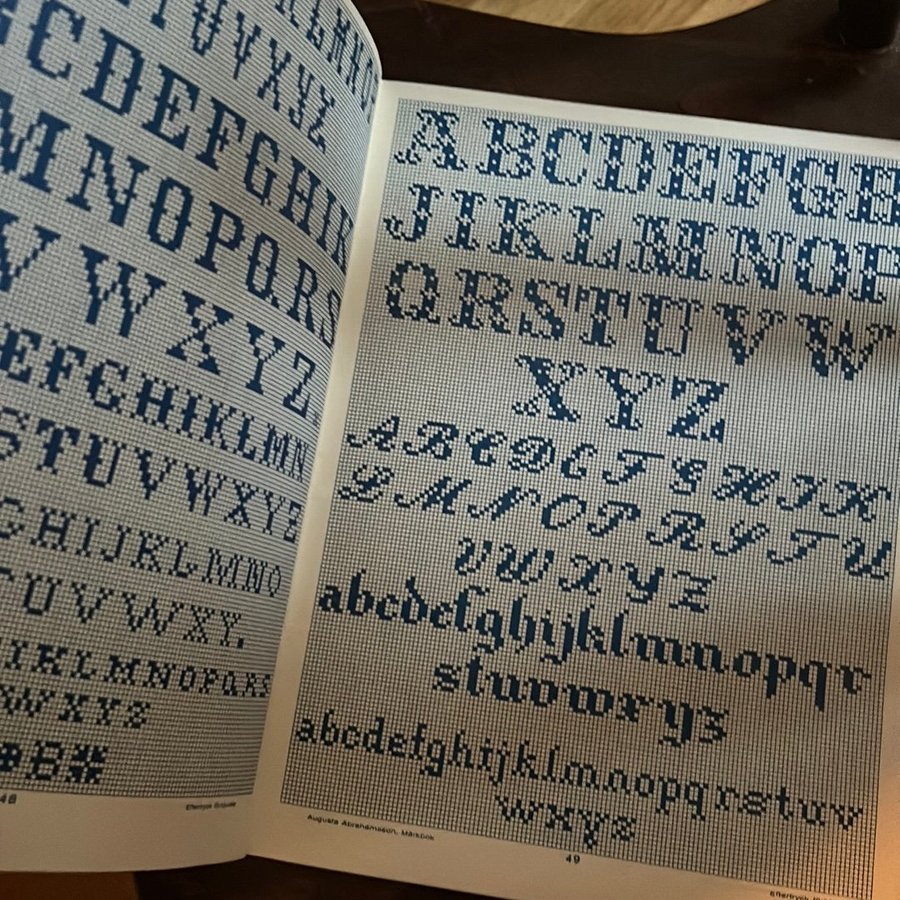 KLMNO
UVXYZ
CDEFGHIK
MNOPQRS
VWXYZ
EFGHIKLMN
STUVWXYZ
GHIJKLMNO
TUVWXY.
IKLMNOPQRS
WXYZ
48
Eftertryck förbjudes
ABCDEFGH
JIKLMNOP
QRSTUVW
XYZ
ABCDEFGHIK
LMNOPRSTU
VWXYZ
abcdefghijklmnopqr
stuvwxyz
abcdefghijklmnopqrstuv
wxyz
Augusta Abrahamsson, Märkbok
49
Eftertryck